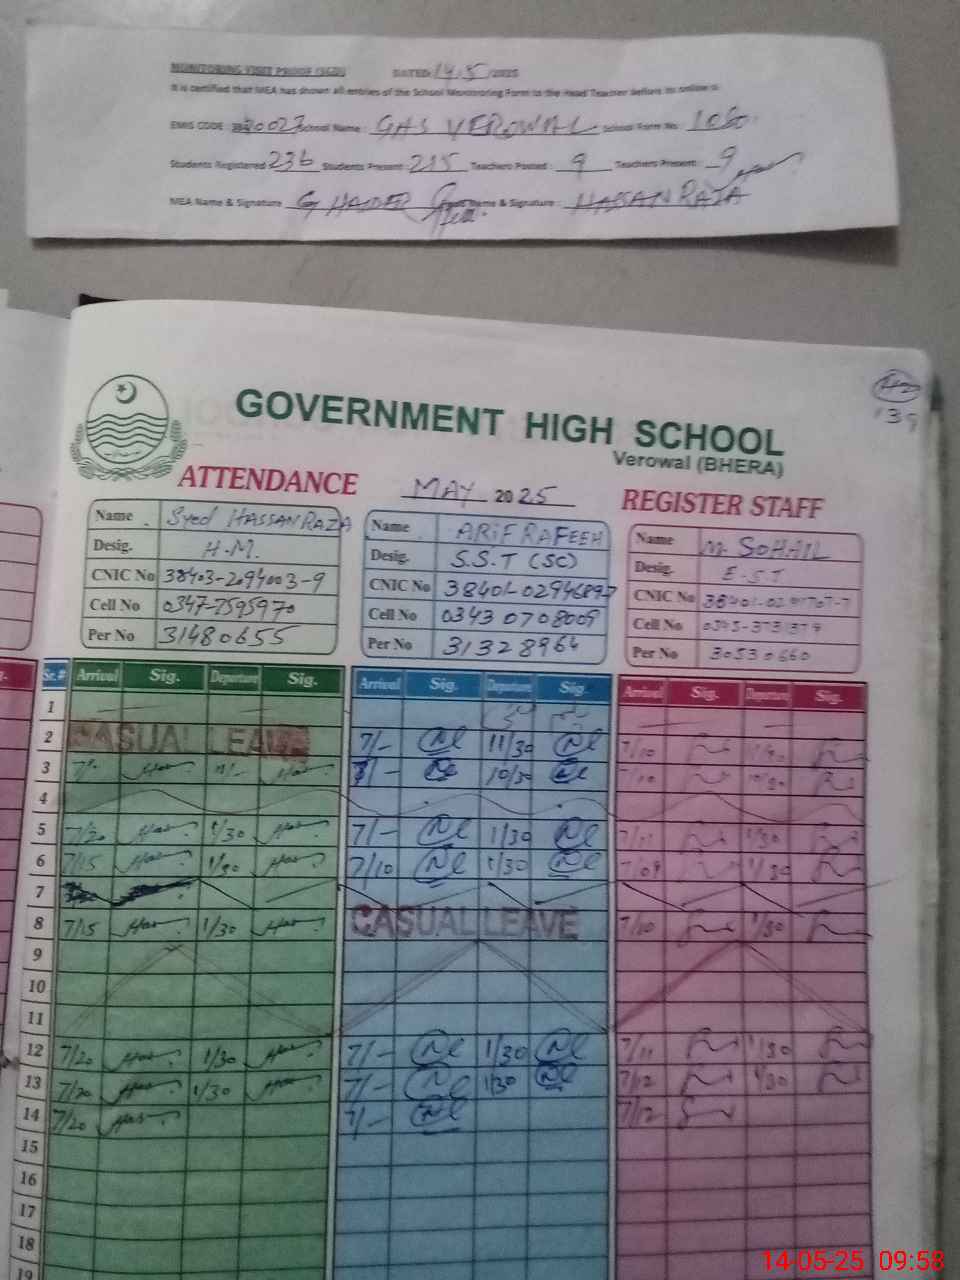 MONITORING VISIT PROOF (SGD) DATED 14/5/2025
It is certified that MEA has shown all entries of the School Monitoring Form to the Head Teacher before its online
EMIS CODE: School Name: GHS VEROWAL School Form No: 1060
Students Registered 236 Students Present: 215 Teachers Posted: 9 Teachers Present: 9
MEA Name & Signature G HAIDER Name & Signature: HASSAN RAZA
139
GOVERNMENT HIGH SCHOOL
Verowal (BHERA)
ATTENDANCE MAY 2025 REGISTER STAFF
Name Syed HASSAN RAZA Name ARIF RAFEEH Name M. SOHAIL
Desig. H.M. Desig. S.S.T (SC) Desig. E.S.T
CNIC No 38403-2094003-9 CNIC No CNIC No
Cell No 0347-7595970 Cell No 0343 0708009 Cell No
Per No 31480655 Per No 31328964 Per No 30530660
Sr.# Arrival Sig. Departure Sig. Arrival Sig. Departure Sig. Arrival Sig. Departure Sig.
1
2 CASUAL LEAVE 7/- 11/30 7/10
3 7/- 10/30 7/10
4
5 7/20 1/30 7/- 1/30 7/11 1/30
6 7/15 1/30 7/10 1/30 7/09 1/30
7
8 7/15 1/30 CASUAL LEAVE 7/10 1/30
9
10
11
12 7/20 1/30 7/- 1/30 7/11 1/30
13 7/20 1/30 7/- 1/30 7/12 1/30
14 7/20 7/- 7/12
15
16
17
18
19
14-05-25 09:58